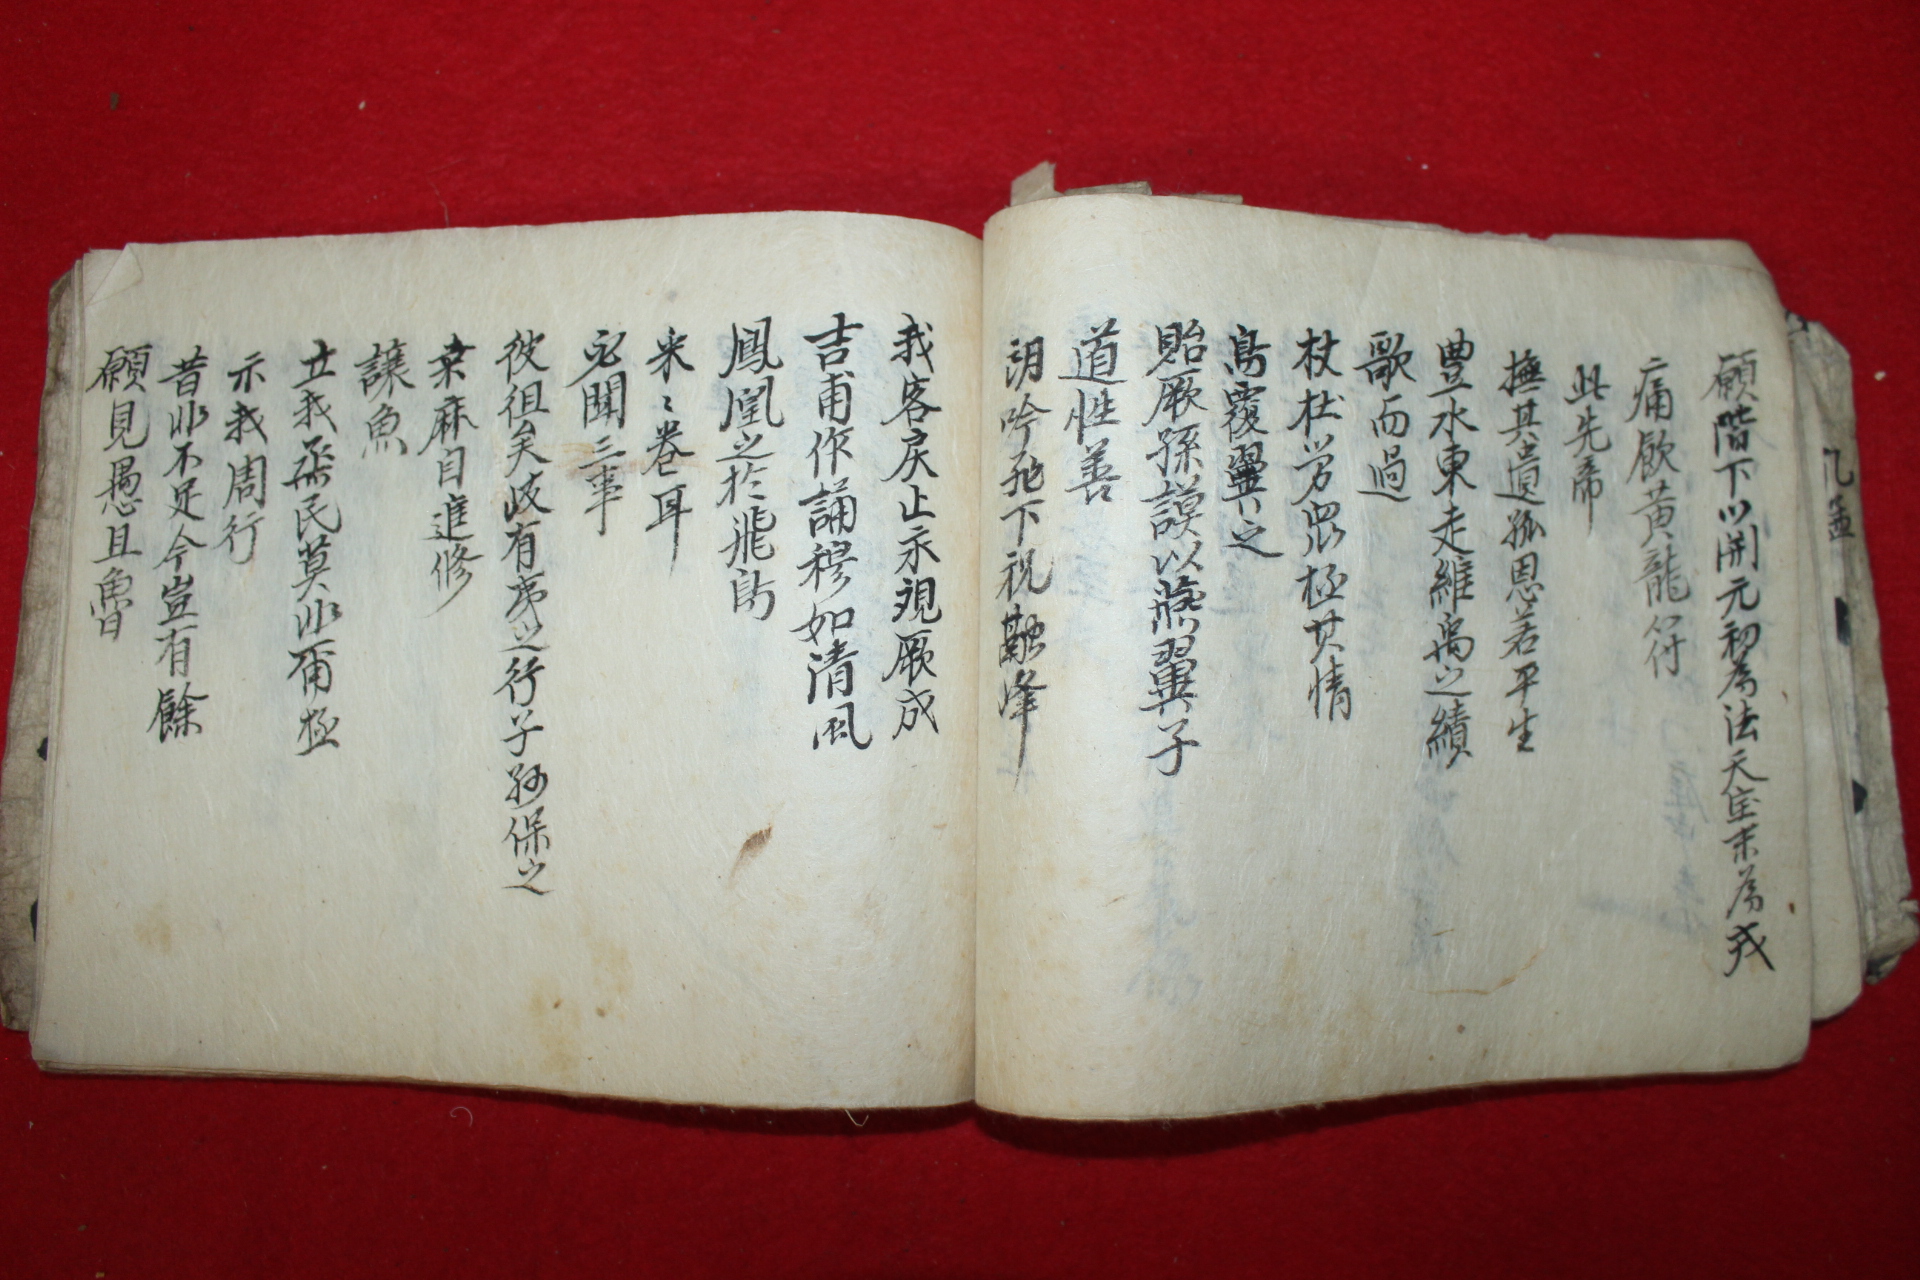 願階下以開元初為法天宝末為戒
痛飮黃龍府
此先帝
撫其遺孤恩若平生
豊水東走維禹之績
歌而過
杖杜勞衆極其情
鳥覆翼之
貽厥孫謨以燕翼子
道性善
朗吟飛下祝融峰
我客戾止永観厥成
吉甫作誦穆如清風
鳳凰之於飛鳥
采〻卷耳
必聞三事
彼徂矣岐有夷之行子孫保之
桑麻自進修
讓魚
立我烝民莫非爾極
示我周行
昔非不足今豈有餘
願見愚且魯
孟